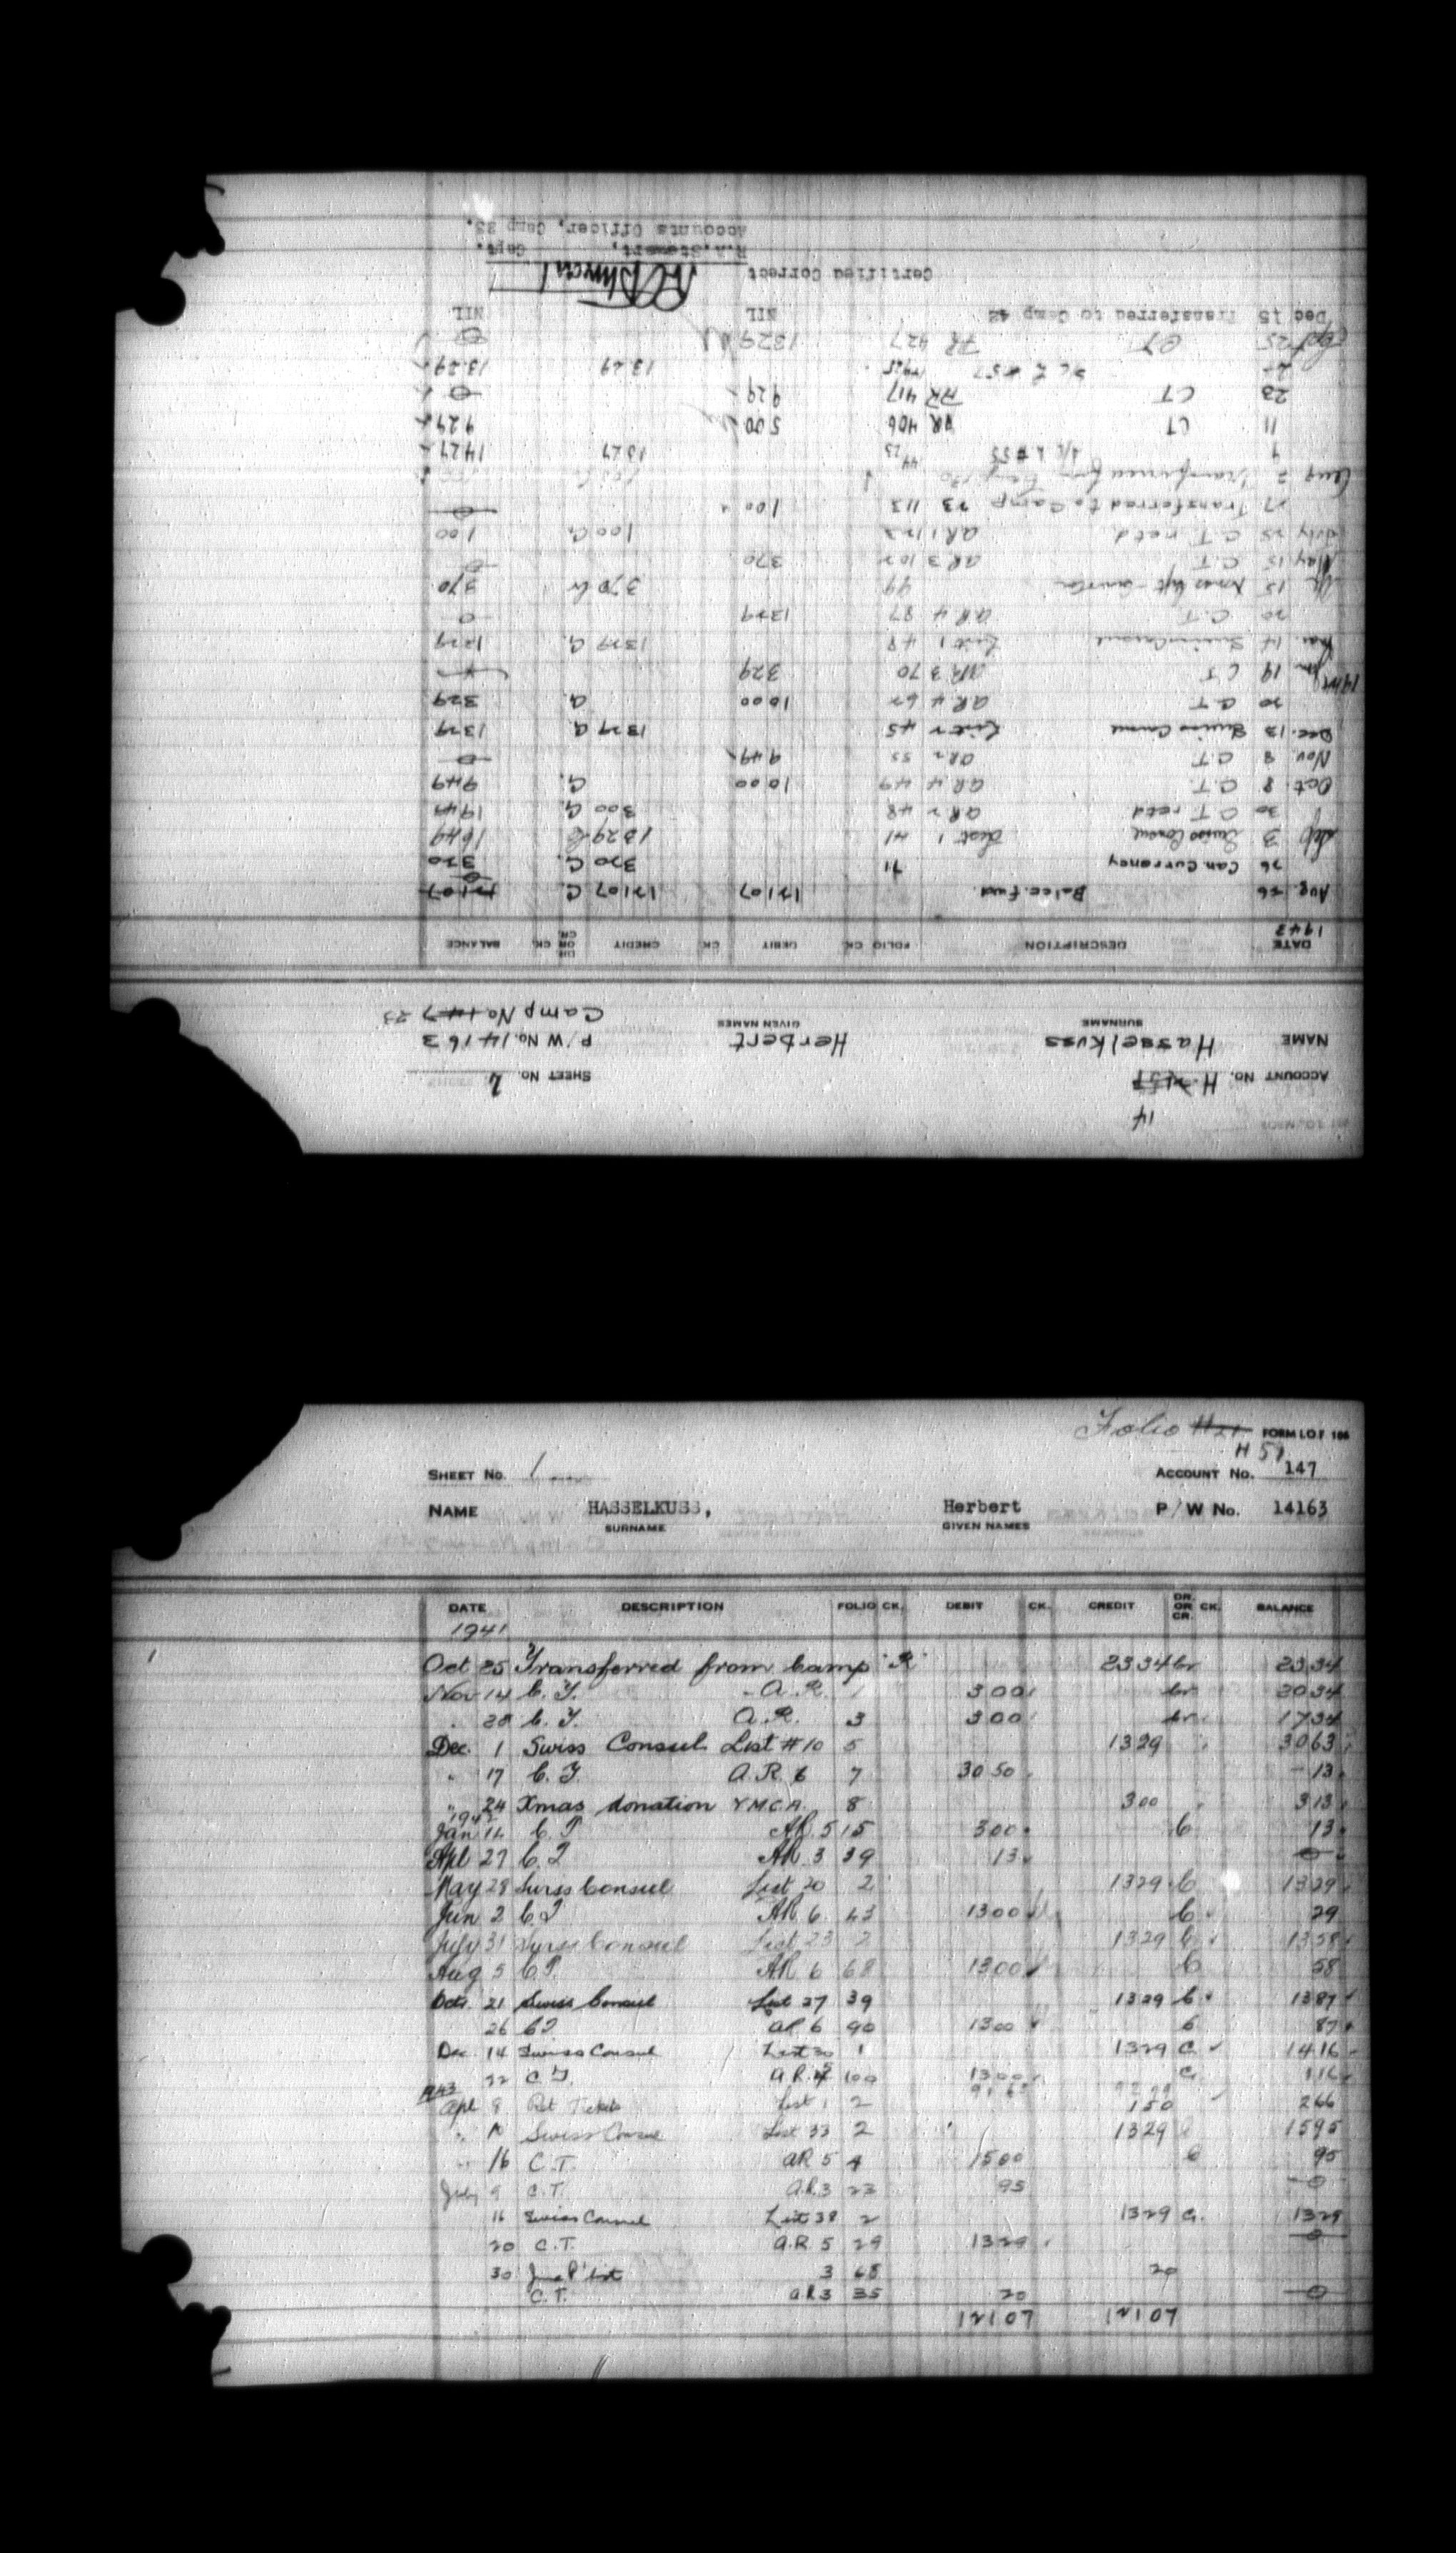 Folio H 21 FORM I.O.F. 106
H 51
SHEET No. 1 ACCOUNT No. 147
NAME HASSELKUSS, Herbert P/W No. 14163
SURNAME GIVEN NAMES
DATE DESCRIPTION FOLIO CK. DEBIT CK. CREDIT DR. OR CR. CK. BALANCE
1941
Oct 25 Transferred from Camp "R" 2334 Cr 2334
Nov 14 C.T. A.R. 1 300 Cr 2034
28 C.T. A.R. 3 300 Cr 1734
Dec. 1 Swiss Consul List #10 5 1329 3063
" 17 C.T. A.R. 6 7 3050 13
" 24 Xmas donation Y.M.C.A. 8 300 313
1942
Jan 12 C.T. AR. 5 15 300 C 13
Apl 27 C.T. AR. 3 39 13 0
May 28 Swiss Consul List 20 2 1329 C 1329
Jun 2 C.T. AR 6 43 1300 C 29
July 31 Swiss Consul List 23 2 1329 C 1358
Aug 5 C.T. AR 6 68 1300 C 58
Oct. 21 Swiss Consul List 27 39 1329 C 1387
26 C.T. AR 6 90 1300 C 87
Dec 14 Swiss Consul List 30 1 1329 C 1416
22 C.T. A.R. 100 1300 C 116
1943
Apl 9 Ret Tickets List 1 2 150 266
" Swiss Consul List 33 2 1329 1595
" 16 C.T. AR 5 4 1500 C 95
July 9 C.T. A.R.3 23 95 0
16 Swiss Consul List 38 2 1329 C. 1329
20 C.T. A.R. 5 29 1329 0
30 3 68 20
C.T. AR3 35 20 0
12107 12107
14
ACCOUNT No. H SHEET No. 2
NAME Hasselkuss Herbert P/W No. 14163
SURNAME GIVEN NAMES Camp No. 23
DATE DESCRIPTION FOLIO CK. DEBIT CK. CREDIT DR. OR CR. CK. BALANCE
1943
Aug. 26 Balce. fwd. 12107 12107 C.
26 Can. Currency 71 320 C. 320
Sep 3 Swiss Consul List 1 41 1329 C 1649
30 C.T. retd AR 2 48 300 C. 1949
Oct. 8 C.T. AR 4 49 1000 C. 949
Nov. 8 C.T. AR 2 55 949 0
Dec. 13 Swiss Consul List 2 45 1329 C 1329
20 C.T. AR 4 62 1000 C. 329
1944
Jan 19 C.T. AR 3 70 329
Mar. 14 Swiss Consul List 1 48 1329 C. 1329
20 C.T. AR 4 87 1329 0
15 Xmas Gift 99 370 Cr 370
May 15 C.T. AR 3 102 370
July 25 C.T. retd AR 1 123 100 C. 100
27 Transferred to Camp 23 113 100 0
Aug 2 Transferred from Camp
9 13.29 1429
11 CT AR 406 5 00 9 29
23 CT AR 417 9 29 0
13.29 13.29
Sept 25 CT AR 427 1329 0
Dec 15 Transferred to Camp 42 NIL NIL
Certified Correct
R.A. Stewart, Capt.
Accounts Officer, Camp 23.